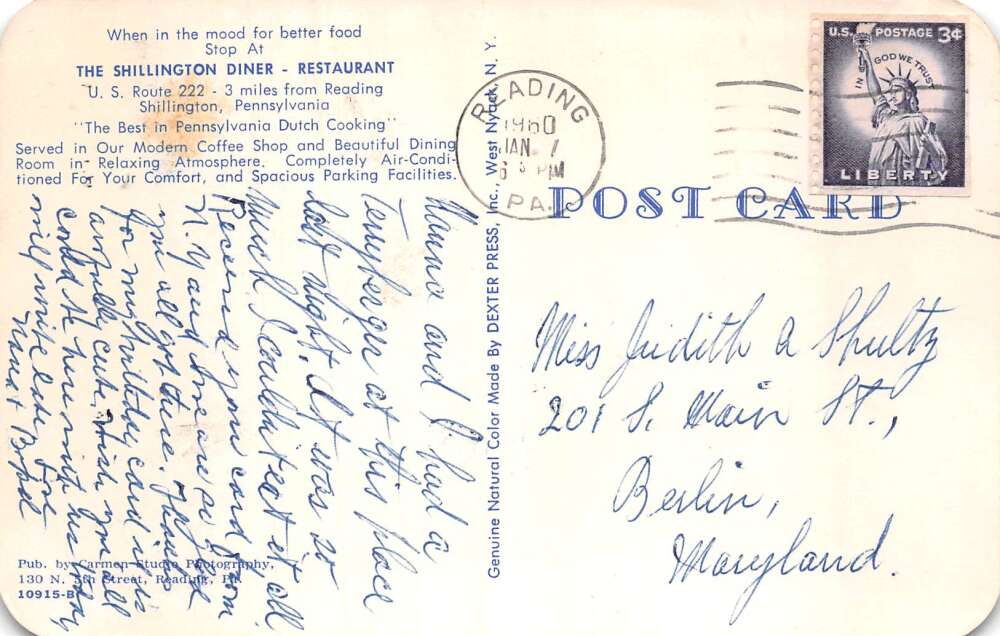 When in the mood for better food
Stop At
THE SHILLINGTON DINER - RESTAURANT
U. S. Route 222 - 3 miles from Reading
Shillington, Pennsylvania
"The Best in Pennsylvania Dutch Cooking"
Served in Our Modern Coffee Shop and Beautiful Dining
Room in Relaxing Atmosphere. Completely Air-Condi-
tioned For Your Comfort, and Spacious Parking Facilities.
Nanna and I had a
at this place
last night. It was so
much I couldn't eat it all.
Received your card from
N.Y and we are so glad
you all got there. Thanks
for my birthday card it is
awfully cute. Wish you all
could be here with us today
will write later, Love
Nana + Bob
Pub. by Carmen Studio Photography,
130 N. 5th Street, Reading, Pa.
10915-B
Genuine Natural Color Made By DEXTER PRESS, Inc., West Nyack, N. Y.
READING
1960
JAN. 7
PM
PA.
U.S. POSTAGE 3¢
IN GOD WE TRUST
LIBERTY
POST CARD
Miss Judith A Shultz
201 S. Main St.,
Berlin,
Maryland.